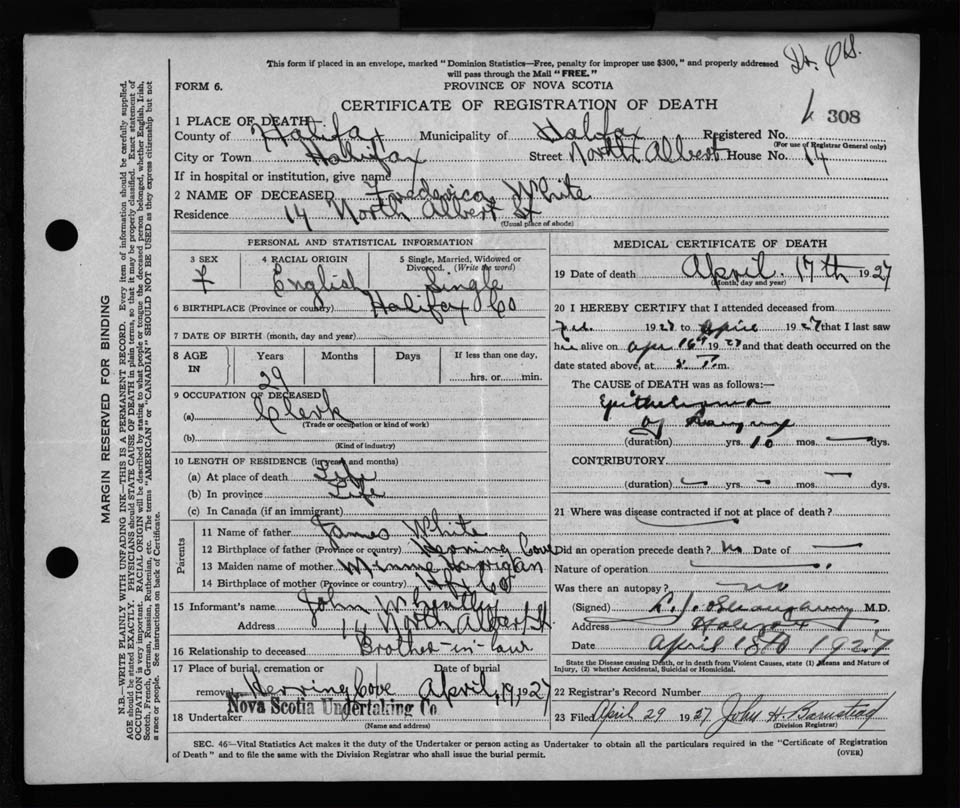 Ht. Co.
This form if placed in an envelope, marked "Dominion Statistics—Free, penalty for improper use $300," and properly addressed
will pass through the Mail "FREE."
FORM 6.
PROVINCE OF NOVA SCOTIA
CERTIFICATE OF REGISTRATION OF DEATH
308
1 PLACE OF DEATH
County of Halifax Municipality of Halifax Registered No.
(For use of Registrar General only)
City or Town Halifax Street North Albert House No. 14
If in hospital or institution, give name
2 NAME OF DECEASED Frederica White
Residence 14 North Albert St
(Usual place of abode)
PERSONAL AND STATISTICAL INFORMATION
3 SEX 4 RACIAL ORIGIN 5 Single, Married, Widowed or Divorced. (Write the word)
F English Single
6 BIRTHPLACE (Province or country) Halifax Co
7 DATE OF BIRTH (month, day and year)
8 AGE IN Years Months Days If less than one day,
29 hrs. or min.
9 OCCUPATION OF DECEASED
(a) Clerk
(Trade or occupation or kind of work)
(b)
(Kind of industry)
10 LENGTH OF RESIDENCE (in years and months)
(a) At place of death Life
(b) In province Life
(c) In Canada (if an immigrant)
Parents
11 Name of father James White
12 Birthplace of father (Province or country) Herring Cove
13 Maiden name of mother Minnie Harrigan
14 Birthplace of mother (Province or country) Hfx Co
15 Informant's name John Wheatley
Address 14 North Albert St
16 Relationship to deceased Brother-in-law
17 Place of burial, cremation or removal Herring Cove Date of burial April 19, 1927
18 Undertaker Nova Scotia Undertaking Co
(Name and address)
MEDICAL CERTIFICATE OF DEATH
19 Date of death April 17th 1927
(Month, day and year)
20 I HEREBY CERTIFY that I attended deceased from
Feb. 1927 to April 1927 that I last saw
her alive on Apr 16th 1927 and that death occurred on the
date stated above, at m.
The CAUSE of DEATH was as follows:—
Epithelioma
of Larynx
(duration) yrs. 10 mos. — dys.
CONTRIBUTORY
(duration) — yrs. — mos. — dys.
21 Where was disease contracted if not at place of death?
Did an operation precede death? no Date of —
Nature of operation
Was there an autopsy? no
(Signed) M.D.
Address Halifax
Date April 18th 1927
State the Disease causing Death, or in death from Violent Causes, state (1) Means and Nature of
Injury, (2) whether Accidental, Suicidal or Homicidal.
22 Registrar's Record Number
23 Filed April 29 1927 John H. Barnstead
(Division Registrar)
SEC. 46—Vital Statistics Act makes it the duty of the Undertaker or person acting as Undertaker to obtain all the particulars required in the "Certificate of Registration
of Death" and to file the same with the Division Registrar who shall issue the burial permit.
(OVER)
MARGIN RESERVED FOR BINDING
N.B.—WRITE PLAINLY WITH UNFADING INK—THIS IS A PERMANENT RECORD. Every item of information should be carefully supplied.
AGE should be stated EXACTLY. PHYSICIANS should STATE CAUSE OF DEATH in plain terms, so that it may be properly classified. Exact statement of
OCCUPATION is very important. RACIAL ORIGIN will be described by stating to what people or tongue the deceased person belonged, whether English, Irish,
Scotch, French, German, Russian, Ruthenian, etc. The terms "AMERICAN" or "CANADIAN" SHOULD NOT BE USED as they express citizenship but not
a race or people. See instructions on back of Certificate.